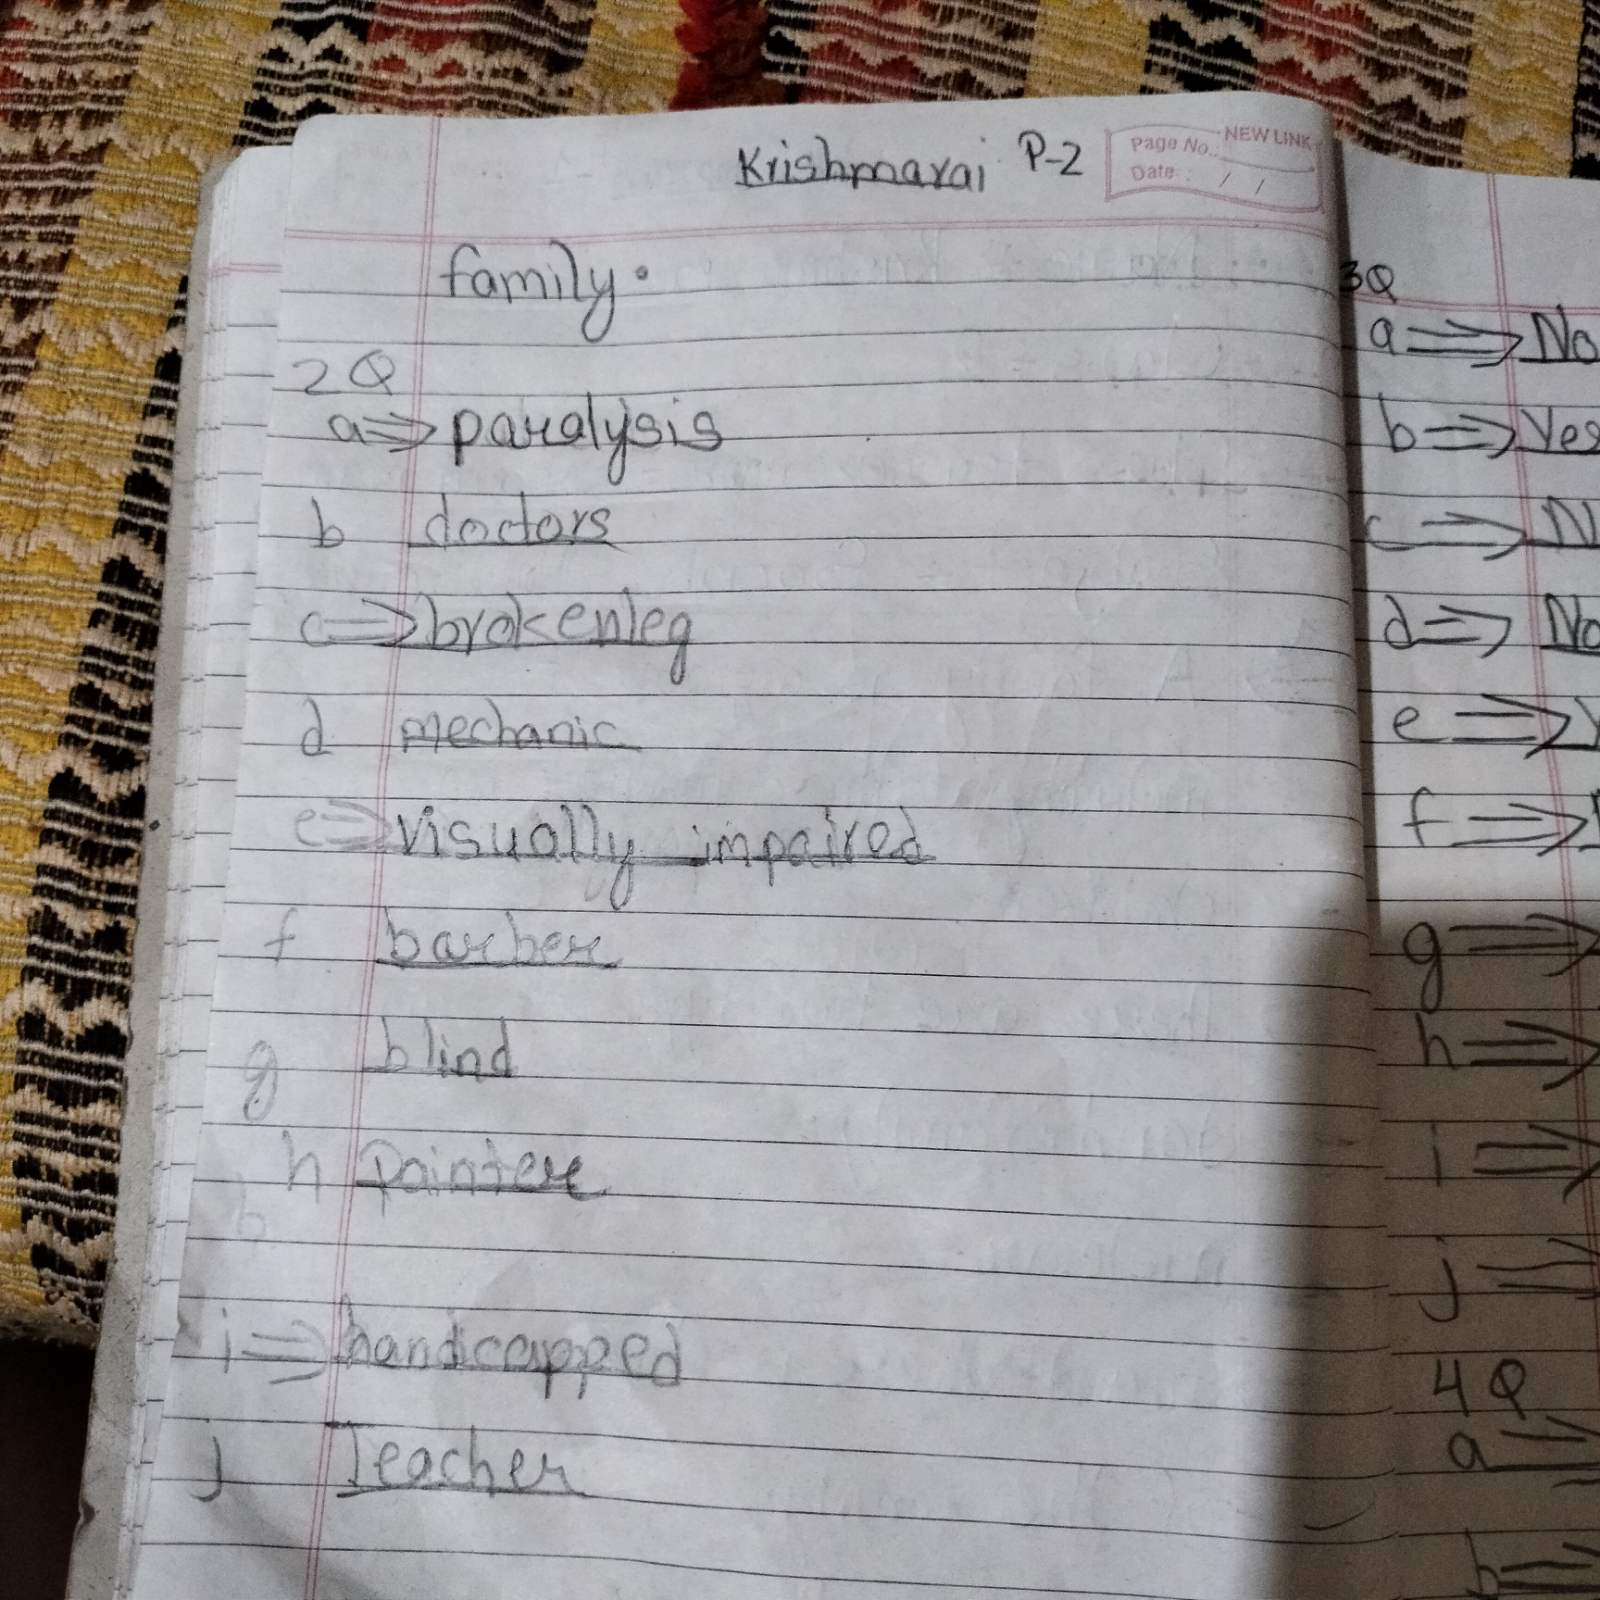 Krishmarai P-2
NEW LINK
Page No.:
Date : / /
family.
2Q
a⇒ paralysis
b doctors
c⇒ brokenleg
d mechanic
e⇒ visually impaired
f barber
g blind
h Painter
b
i⇒ handicapped
j Teacher
3Q
a⇒ No
b⇒ Yes
c⇒ N
d⇒ No
e⇒ Y
f⇒
g⇒
h⇒
i⇒
j⇒
4Q
a⇒
b⇒